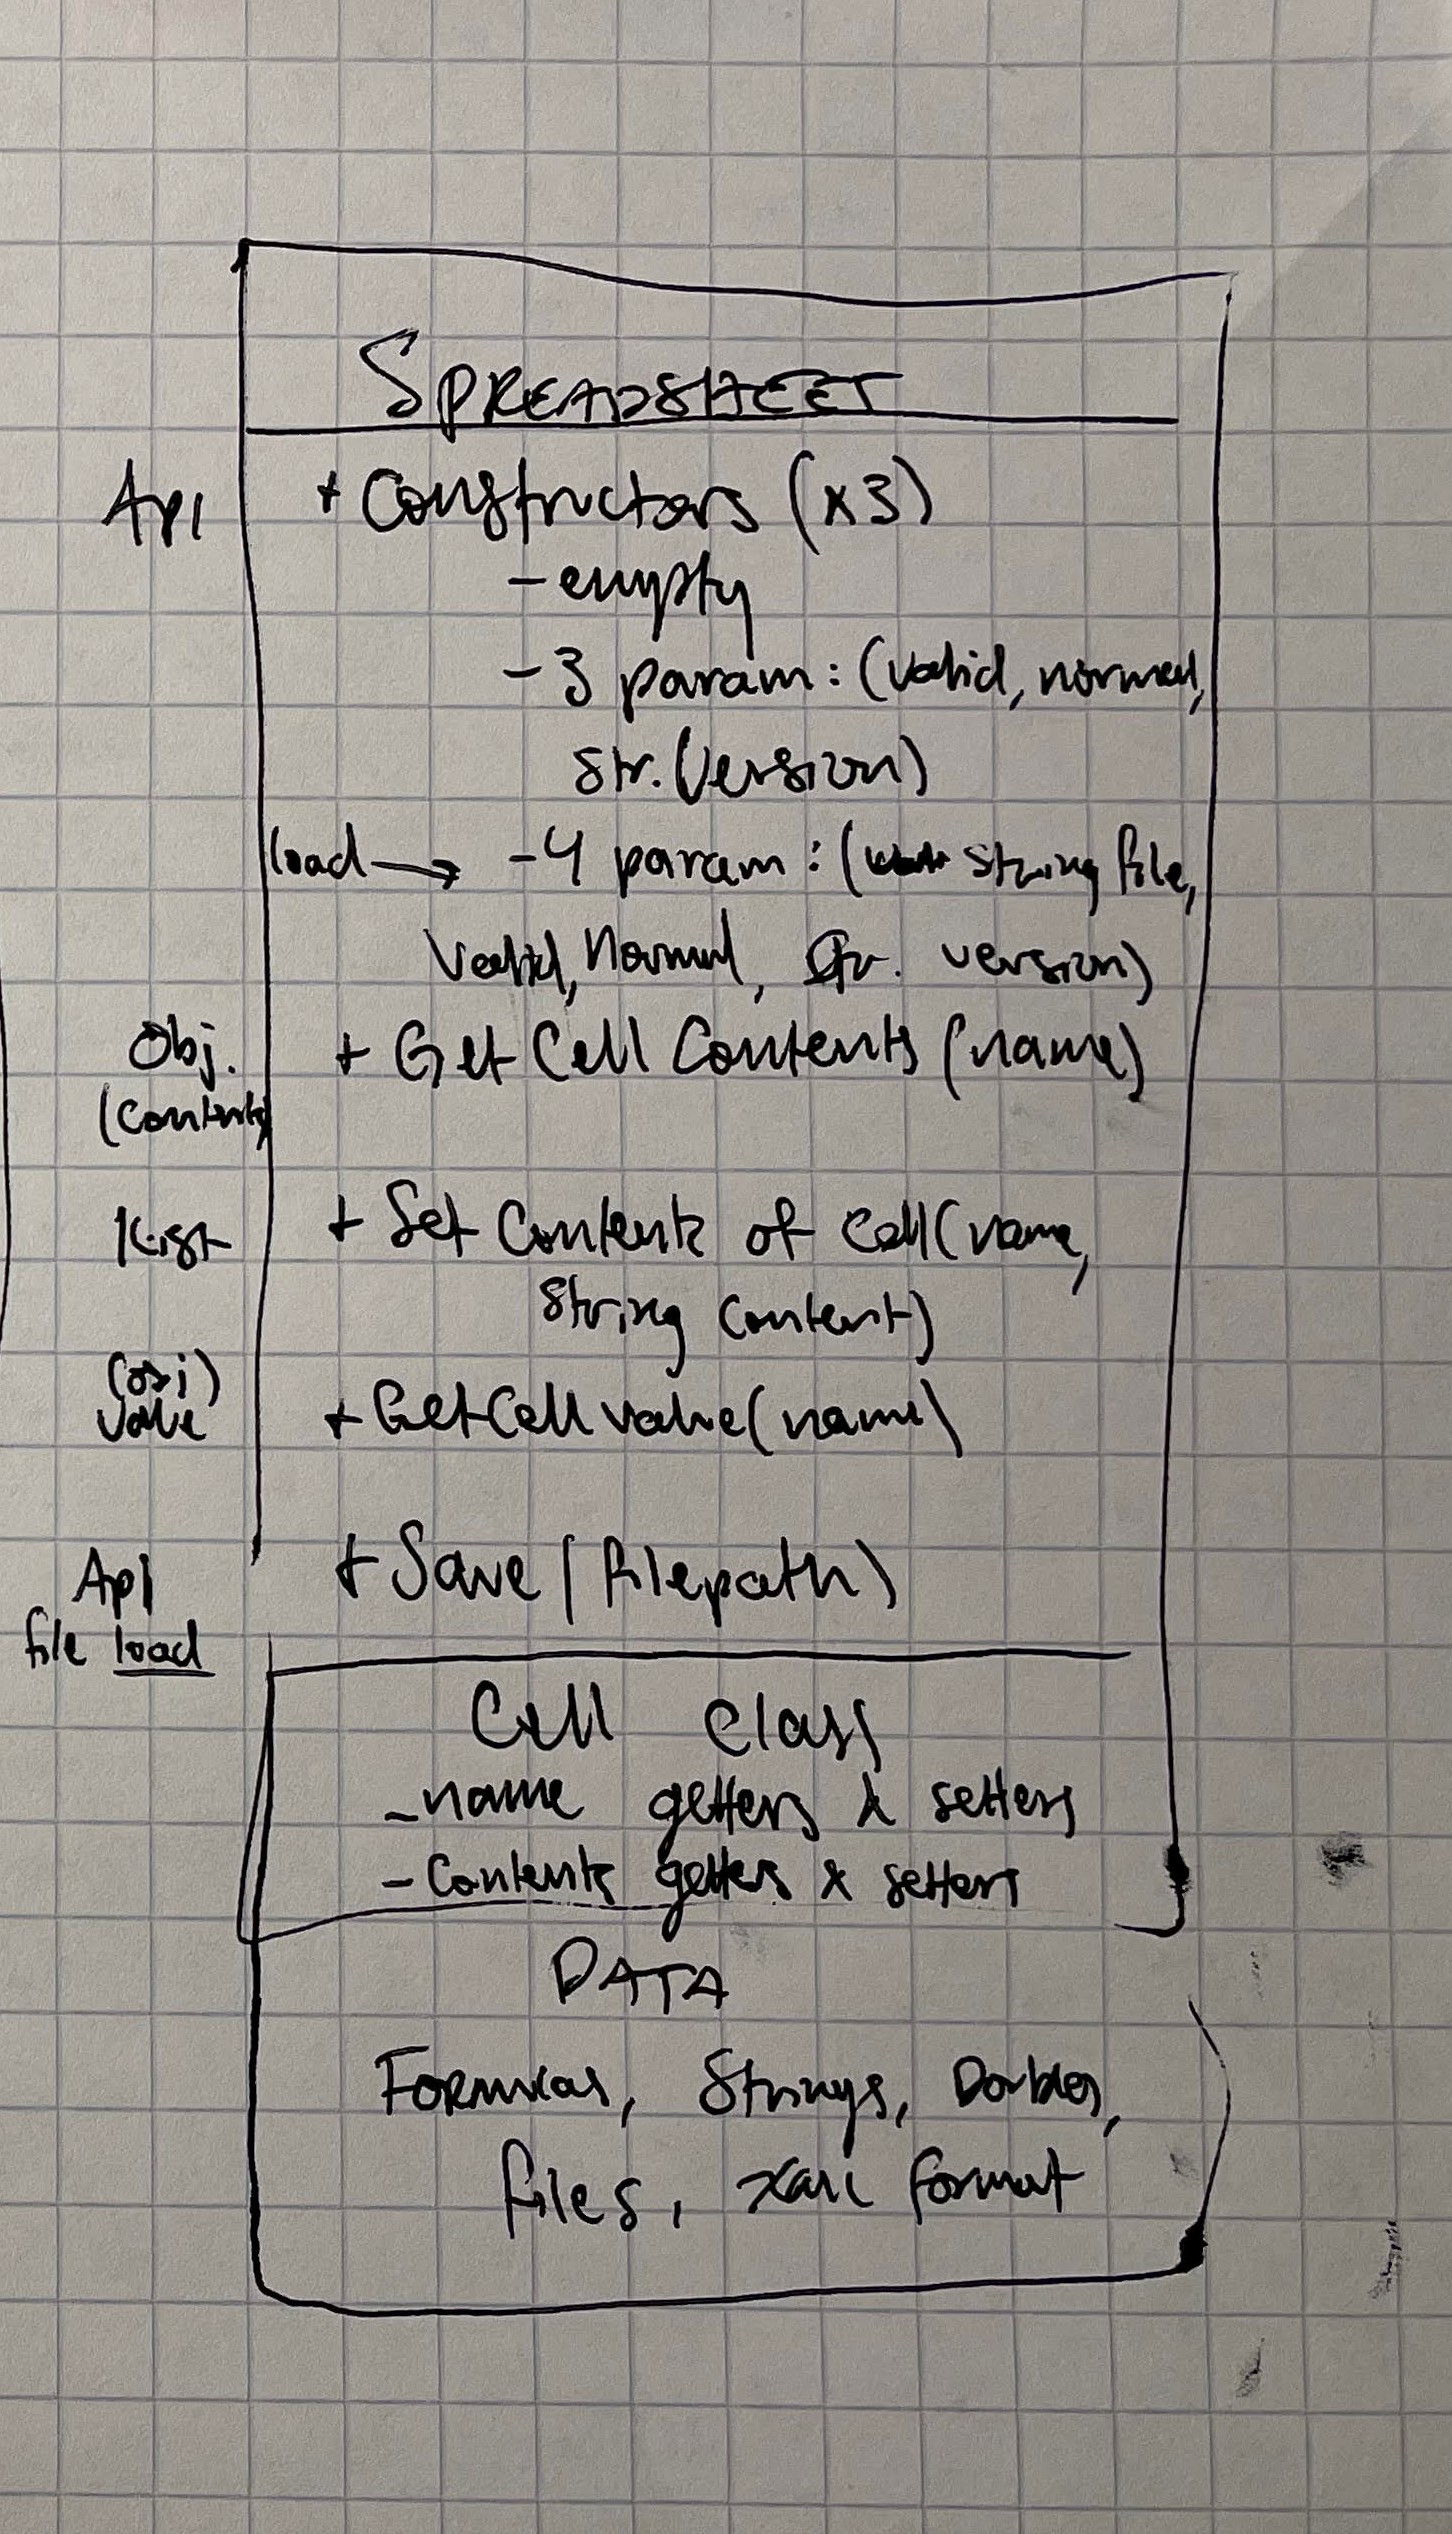 SPREADSHEET
Api + Constructors (x3)
- empty
- 3 param: (valid, normal,
str. version)
load → - 4 param: (string file,
valid, normal, str. version)
Obj. + Get Cell Contents (name)
(contents)
list + Set Contents of Cell (name,
string content)
(obj)
value + GetCellValue(name)
Api + Save (filepath)
file load
Cell class
- name getters & setters
- contents getters & setters
DATA
FORMULAS, Strings, Doubles,
files, XML format